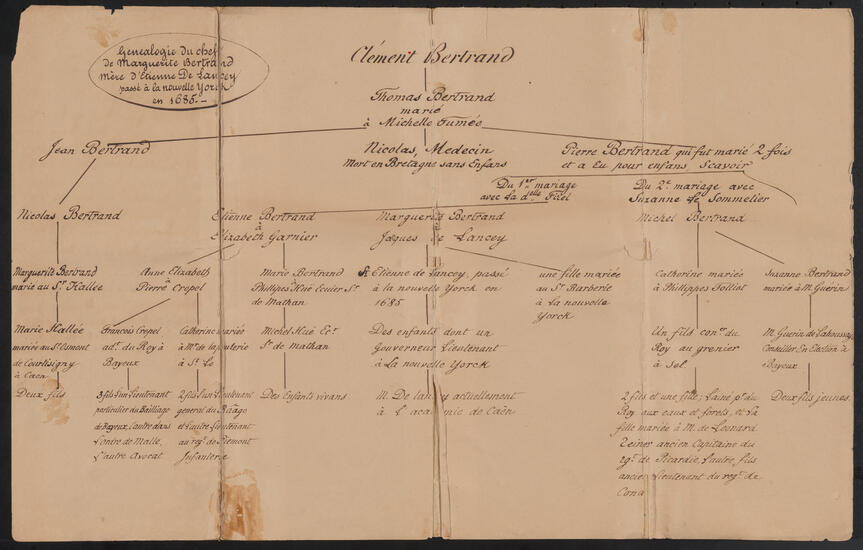 Généalogie du chef
de Marguerite Bertrand
mère d'Etienne De Lancey
passé à la nouvelle Yorck
en 1685.—
Clément Bertrand
Thomas Bertrand
marié
à Michelle Fumée
Jean Bertrand
Nicolas, Medecin
Mort en Bretagne sans Enfans
Pierre Bertrand qui fut marié 2 fois
et a Eu pour enfans Scavoir
Du 1er mariage
avec la dlle Filel
Du 2e mariage avec
Suzanne Le Sommelier
Nicolas Bertrand
Etienne Bertrand
à
Elizabeth Garnier
Marguerite Bertrand
à
Jacques de Lancey
Michel Bertrand
Marguerite Bertrand
marie au Sr Hallee
Anne Elizabeth
à
Pierre Crepel
Marie Bertrand
Phillipes Hüe Ecuier Sr
de Mathan
Etienne de Lancey, passé
à la nouvelle Yorck en
1685
une fille mariée
au Sr Barberie
à la nouvelle
Yorck
Catherine mariée
à Phillippes Folliot
Suzanne Bertrand
mariée à M. Guérin
Marie Hallée
mariée au Sr Osmont
de Courtisigny
à Caen
François Crepel
adt. du Roy à
Bayeux
Catherine mariée
à Mr de la
à St Lo
Michel Hüe Ecr
Sr de Mathan
Des enfants dont un
Gouverneur Lieutenant
à La nouvelle Yorck
Un fils coner du
Roy au grenier
à Sel.
M. Guerin de Lahoussaye
Conseiller En Election à
Bayeux
Deux fils
3 fils l'un Lieutenant
particulier du Bailliage
de Bayeux, l'autre dans
L'ordre de Malte,
L'autre Avocat
2 fils l'un Lieutenant
general du
et L'autre Lieutenant
au regt de Piemont
Infanterie
Des Enfants vivans
M. De lancey actuellement
à l'academie de Caën
2 fils et une fille; L'ainé pr du
Roy aux eaux et forets, et la
fille mariée à M. de
ancien Capitaine du
rgt de Picardie, L'autre, fils
ancien Lieutenant du regt de
Deux fils jeunes.